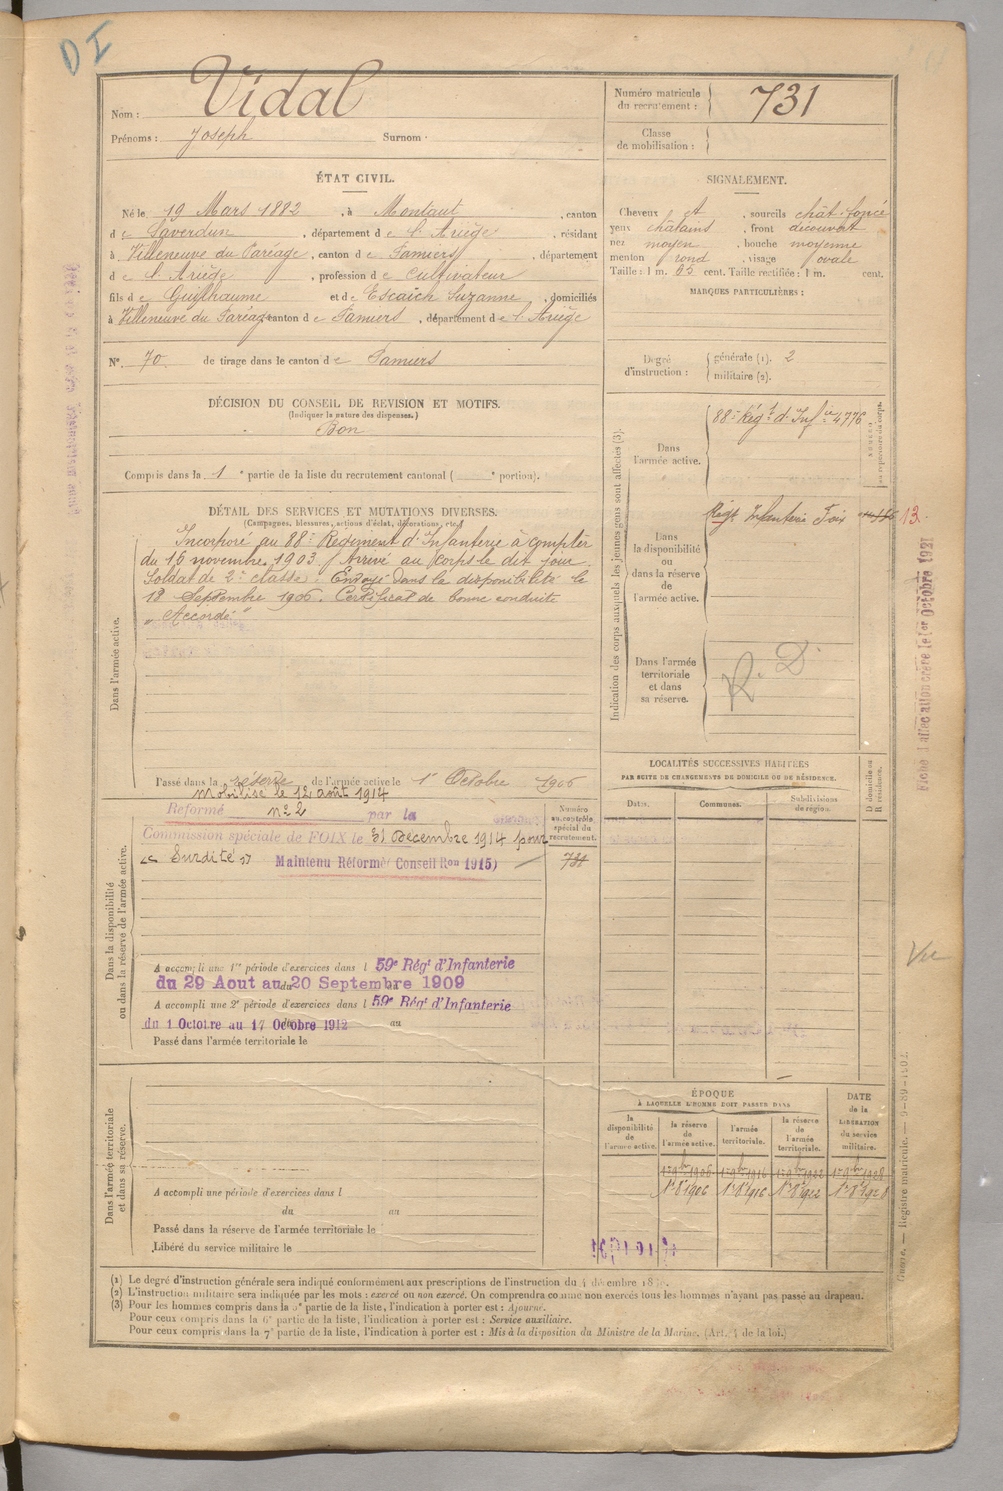 D I
Nom : Vidal
Prénoms : Joseph Surnom :
Numéro matricule du recrutement : 731
Classe de mobilisation :
ÉTAT CIVIL.
Né le 19 Mars 1882, à Montaut, canton
d e Saverdun, département d e l'Ariège, résidant
à Villeneuve du Paréage, canton d e Pamiers, département
d e l'Ariège, profession de Cultivateur
fils d e Guilhaume et d e Escaich Suzanne, domiciliés
à Villeneuve du Paréage canton d e Pamiers, département d e l'Ariège
N° 70 de tirage dans le canton d e Pamiers
SIGNALEMENT.
Cheveux et, sourcils chât. foncé
yeux châtains, front découvert
nez moyen, bouche moyenne
menton rond, visage ovale
Taille : 1 m. 65 cent. Taille rectifiée : 1 m. cent.
MARQUES PARTICULIÈRES :
Degré d'instruction : générale (1). 2
militaire (2).
DÉCISION DU CONSEIL DE REVISION ET MOTIFS.
(Indiquer la nature des dispenses.)
Bon
Compris dans la 1e partie de la liste du recrutement cantonal ( e portion).
DÉTAIL DES SERVICES ET MUTATIONS DIVERSES.
(Campagnes, blessures, actions d'éclat, décorations, etc.)
Dans l'armée active.
Incorporé au 88e Régiment d'Infanterie à compter
du 16 novembre 1903. Arrivé au corps le dit jour
Soldat de 2e classe. Envoyé dans la disponibilité le
18 Septembre 1906. Certificat de bonne conduite
"Accordé"
Passé dans la réserve de l'armée active le 1er Octobre 1906
Dans la disponibilité ou dans la réserve de l'armée active.
Mobilisé le 12 août 1914
Reformé n° 2 par la
Commission spéciale de FOIX le 31 Décembre 1914 pour
« Surdité » Maintenu Réformé (Conseil Ron 1915)
Numéro au contrôle spécial du recrutement.
731
A accompli une 1re période d'exercices dans l 59e Régt d'Infanterie
du 29 Aout au 20 Septembre 1909
A accompli une 2e période d'exercices dans l 59e Régt d'Infanterie
du 1 Octobre au 17 Octobre 1912 au
Passé dans l'armée territoriale le
Dans l'armée territoriale et dans sa réserve.
A accompli une période d'exercices dans l
du au
Passé dans la réserve de l'armée territoriale le
Libéré du service militaire le
Indication des corps auxquels les jeunes gens sont affectés (3).
Dans l'armée active.
88e Régt d'Infie 4776
Dans la disponibilité ou dans la réserve de l'armée active.
Régt Infanterie Foix 13.
Dans l'armée territoriale et dans sa réserve.
R. D
LOCALITÉS SUCCESSIVES HABITÉES
PAR SUITE DE CHANGEMENTS DE DOMICILE OU DE RÉSIDENCE.
Dates. Communes. Subdivisions de région. D domicile ou R résidence.
Vu
ÉPOQUE
À LAQUELLE L'HOMME DOIT PASSER DANS
la disponibilité de l'armée active. la réserve de l'armée active. l'armée territoriale. la réserve de l'armée territoriale. DATE de la LIBÉRATION du service militaire.
1er 9bre 1906 1er 9bre 1916 1er 9bre 1922 1er 9bre 1928
1er 8bre 1906 1er 8bre 1916 1er 8bre 1922 1er 8bre 1928
(1) Le degré d'instruction générale sera indiqué conformément aux prescriptions de l'instruction du 4 décembre
(2) L'instruction militaire sera indiquée par les mots : exercé ou non exercé. On comprendra comme non exercés tous les hommes n'ayant pas passé au drapeau.
(3) Pour les hommes compris dans la 5e partie de la liste, l'indication à porter est : Ajourné.
Pour ceux compris dans la 6e partie de la liste, l'indication à porter est : Service auxiliaire.
Pour ceux compris dans la 7e partie de la liste, l'indication à porter est : Mis à la disposition du Ministre de la Marine. (Art. 4 de la loi.)
Fiche d'affectation créée le 1er Octobre 1921
Guerre. — Registre matricule. — 9-89-1902.